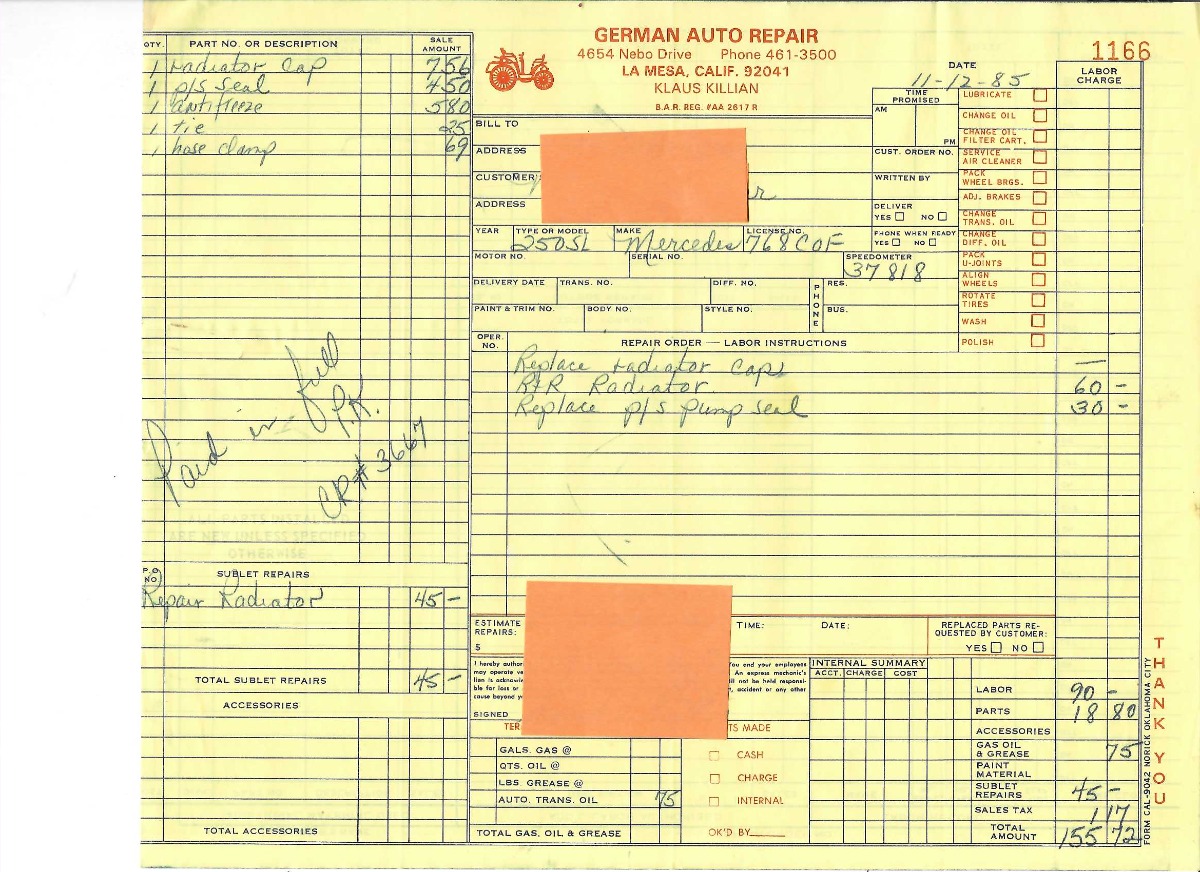 GERMAN AUTO REPAIR
4654 Nebo Drive Phone 461-3500
LA MESA, CALIF. 92041
KLAUS KILLIAN
B.A.R. REG. #AA 2617 R
1166
DATE
11-12-85
QTY. PART NO. OR DESCRIPTION SALE AMOUNT
1 radiator cap 7 56
1 p/s seal 4 50
1 antifreeze 5 80
1 tie 25
1 hose clamp 69
Paid in full
P.K.
CK# 3667
ALL PARTS INSTALLED
ARE NEW UNLESS SPECIFIED
OTHERWISE
P.O. NO. SUBLET REPAIRS
Repair Radiator 45 -
TOTAL SUBLET REPAIRS 45 -
ACCESSORIES
TOTAL ACCESSORIES
BILL TO
ADDRESS
CUSTOMER'S
ADDRESS
TIME PROMISED
AM
PM
CUST. ORDER NO.
WRITTEN BY
DELIVER
YES NO
PHONE WHEN READY
YES NO
YEAR TYPE OR MODEL MAKE LICENSE NO.
250SL Mercedes 768 COF
MOTOR NO. SERIAL NO. SPEEDOMETER
37818
DELIVERY DATE TRANS. NO. DIFF. NO. PHONE RES.
PAINT & TRIM NO. BODY NO. STYLE NO. BUS.
LABOR CHARGE
LUBRICATE
CHANGE OIL
CHANGE OIL FILTER CART.
SERVICE AIR CLEANER
PACK WHEEL BRGS.
ADJ. BRAKES
CHANGE TRANS. OIL
CHANGE DIFF. OIL
PACK U-JOINTS
ALIGN WHEELS
ROTATE TIRES
WASH
POLISH
OPER. NO. REPAIR ORDER — LABOR INSTRUCTIONS
Replace radiator cap —
R&R Radiator 60 -
Replace p/s pump seal 30 -
ESTIMATE REPAIRS:
$
TIME: DATE:
REPLACED PARTS REQUESTED BY CUSTOMER:
YES NO
I hereby author
may operate ve
lien is acknow
ble for loss or
cause beyond y
You and your employees
An express mechanic's
ill not be held responsi-
, accident or any other
SIGNED
TER
TS MADE
GALS. GAS @
QTS. OIL @
LBS. GREASE @
AUTO. TRANS. OIL 75
TOTAL GAS, OIL & GREASE
CASH
CHARGE
INTERNAL
OK'D BY
INTERNAL SUMMARY
ACCT. CHARGE COST
LABOR 90 -
PARTS 18 80
ACCESSORIES
GAS OIL & GREASE 75
PAINT MATERIAL
SUBLET REPAIRS 45 -
SALES TAX 1 17
TOTAL AMOUNT 155 72
FORM CAL-9042 NORICK OKLAHOMA CITY
THANK YOU